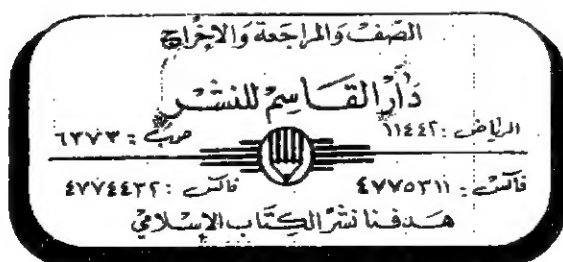 الصف والمراجعة والإخراج
دار القاسم للنشر
الرياض: ١١٤٤٢ ص.ب: ٦٣٧٣
فاكس: ٤٧٧٥٣١١ فاكس: ٤٧٧٤٤٣٢
هدفنا نشر الكتاب الإسلامي